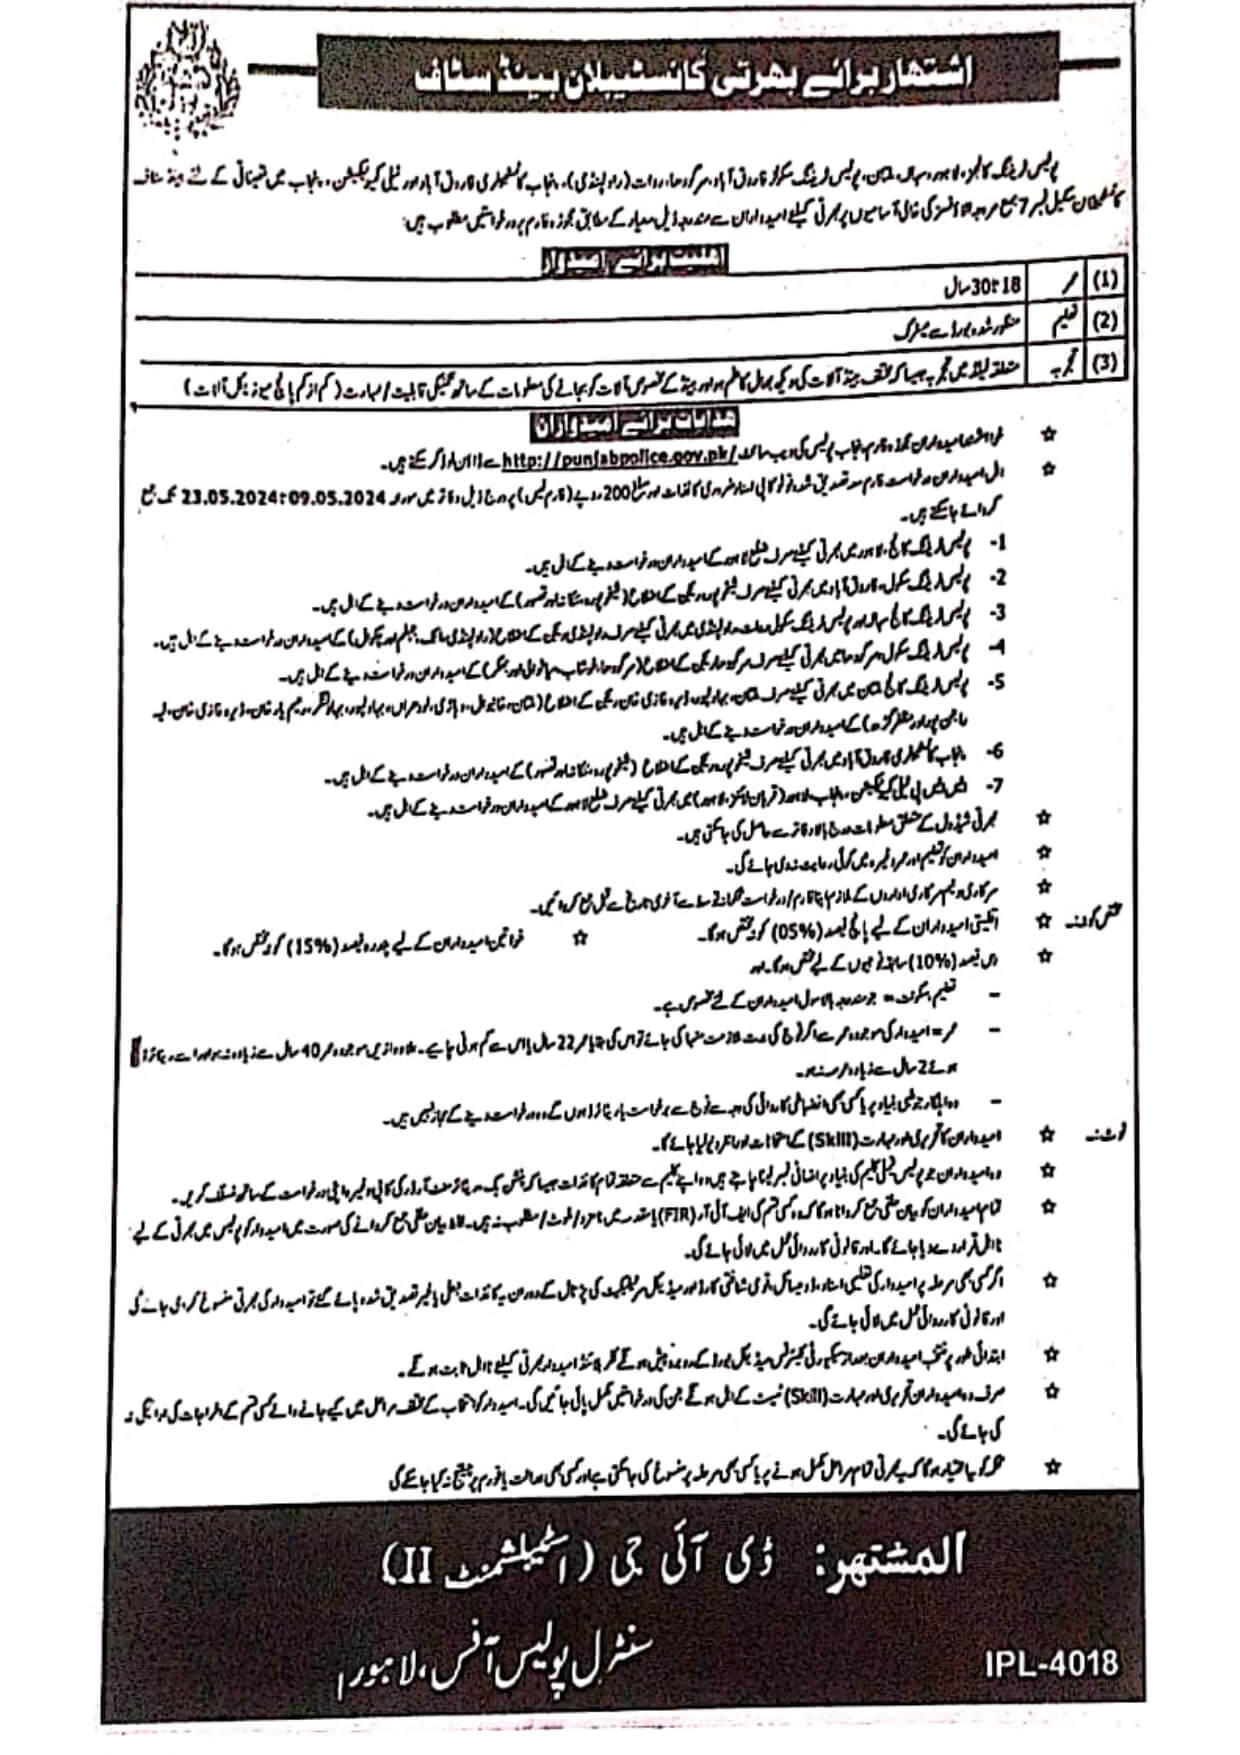 اشتہار برائے بھرتی کانسٹیبلان بینڈ سٹاف
پولیس ٹریننگ کالجز، لاہور، سہالہ، ملتان، پولیس ٹریننگ سکولز فاروق آباد، سرگودھا، روات (راولپنڈی)، پنجاب کانسٹیبلری فاروق آباد اور ٹیلی کمیونیکیشن، پنجاب میں تعیناتی کے لئے بینڈ سٹاف
کانسٹیبلان سکیل نمبر 7 بمع مروجہ الاؤنسز کی خالی آسامیوں پر بھرتی کیلئے امیدواران سے مندرجہ ذیل معیار کے مطابق مجوزہ فارم پر درخواستیں مطلوب ہیں:
اہلیت برائے امیدوار
(1) عمر 18 تا 30 سال
(2) تعلیم منظور شدہ بورڈ سے میٹرک
(3) تجربہ متعلقہ فیلڈ میں تجربہ جیسا کہ مختلف بینڈ آلات کی دیکھ بھال کا علم ہو اور بینڈ کے مخصوص آلات کو بجانے کی معلومات کے ساتھ تکنیکی قابلیت/مہارت (کم از کم پانچ میوزیکل آلات)
ہدایات برائے امیدواران
☆ خواہشمند امیدواران مجوزہ فارم پنجاب پولیس کی ویب سائٹ http://punjabpolice.gov.pk/ سے ڈاؤن لوڈ کر سکتے ہیں۔
☆ اہل امیدواران درخواست فارم معہ تصدیق شدہ فوٹو کاپی اسناد ضروری کاغذات اور مبلغ 200 روپے (فارم فیس) درج ذیل دفاتر میں مورخہ 09.05.2024 تا 23.05.2024 تک جمع
کروائے جا سکتے ہیں۔
1- پولیس ٹریننگ کالج، لاہور میں بھرتی کیلئے صرف ضلع لاہور کے امیدواران درخواست دینے کے اہل ہیں۔
2- پولیس ٹریننگ سکول، فاروق آباد میں بھرتی کیلئے صرف شیخوپورہ ریجن کے اضلاع (شیخوپورہ، ننکانہ اور قصور) کے امیدواران درخواست دینے کے اہل ہیں۔
3- پولیس ٹریننگ کالج سہالہ اور پولیس ٹریننگ سکول روات، راولپنڈی میں بھرتی کیلئے صرف راولپنڈی ریجن کے اضلاع (راولپنڈی، اٹک، جہلم اور چکوال) کے امیدواران درخواست دینے کے اہل ہیں۔
4- پولیس ٹریننگ سکول سرگودھا میں بھرتی کیلئے صرف سرگودھا ریجن کے اضلاع (سرگودھا، خوشاب، میانوالی اور بھکر) کے امیدواران درخواست دینے کے اہل ہیں۔
5- پولیس ٹریننگ کالج ملتان میں بھرتی کیلئے صرف ملتان، بہاولپور، ڈیرہ غازی خان ریجن کے اضلاع (ملتان، خانیوال، وہاڑی، لودھراں، بہاولپور، بہاولنگر، رحیم یار خان، ڈیرہ غازی خان، لیہ
راجن پور اور مظفر گڑھ) کے امیدواران درخواست دینے کے اہل ہیں۔
6- پنجاب کانسٹیبلری فاروق آباد میں بھرتی کیلئے صرف شیخوپورہ ریجن کے اضلاع (شیخوپورہ، ننکانہ اور قصور) کے امیدواران درخواست دینے کے اہل ہیں۔
7- ایس ایس پی ٹیلی کمیونیکیشن، پنجاب، لاہور (قربان لائنز، لاہور) میں بھرتی کیلئے صرف ضلع لاہور کے امیدواران درخواست دینے کے اہل ہیں۔
☆ بھرتی شیڈول کے متعلق معلومات درج بالا دفاتر سے حاصل کی جا سکتی ہیں۔
☆ امیدواران کو تعلیم اور عمر وغیرہ میں کوئی رعایت نہ دی جائے گی۔
☆ سرکاری و نیم سرکاری اداروں کے ملازم اپنا فارم/درخواست محکمانہ توسط سے آخری تاریخ سے قبل جمع کروائیں۔
مختص کوٹہ: ☆ اقلیتی امیدواران کے لیے پانچ فیصد (05%) کوٹہ مختص ہوگا۔ ☆ خواتین امیدواران کے لیے پندرہ فیصد (15%) کوٹہ مختص ہوگا۔
☆ دس فیصد (10%) سابقہ فوجیوں کے لیے مختص ہوگا۔ اور
- تعلیم، سکونت = جو مندرجہ بالا سول امیدواران کے لئے مخصوص ہے۔
- عمر = امیدوار کی موجودہ عمر سے اگر فوج کی مدت ملازمت منہا کی جائے تو اس کی بقایا عمر 22 سال یا اس سے کم ہونی چاہیے۔ علاوہ ازیں موجودہ عمر 40 سال سے زیادہ نہ ہو اور اسے ریٹائرڈ
ہوئے 2 سال سے زیادہ عرصہ نہ ہو۔
- وہ اہلکار جو طبی بنیاد پر یا کسی بھی انضباطی کارروائی کی وجہ سے فوج سے برخواست یا ریٹائرڈ ہوں گے وہ درخواست دینے کے مجاز نہیں ہیں۔
نوٹ: ☆ امیدواران کا تحریری اور مہارت (Skill) کے امتحانات اور انٹرویو لیا جائے گا۔
☆ وہ امیدواران جو پولیس فیملی کلیم کی بنیاد پر اضافی نمبر لینا چاہتے ہیں وہ اپنے کلیم سے متعلقہ تمام کاغذات جیسا کہ پنشن بک، ریٹائرمنٹ آرڈر کی کاپی وغیرہ اپنی درخواست کے ساتھ منسلک کریں۔
☆ تمام امیدواران کو بیان حلفی جمع کروانا ہوگا کہ وہ کسی قسم کی ایف آئی آر (FIR) یا مقدمہ میں نامزد/ملوث/مطلوب نہ ہیں۔ غلط بیان حلفی جمع کروانے کی صورت میں امیدوار کو پولیس میں بھرتی کے لیے
نااہل قرار دے دیا جائے گا۔ اور قانونی کارروائی عمل میں لائی جائے گی۔
☆ اگر کسی بھی مرحلہ پر امیدوار کی تعلیمی اسناد، ڈومیسائل، قومی شناختی کارڈ اور میڈیکل سرٹیفکیٹ کی پڑتال کے دوران یہ کاغذات جعلی یا غیر تصدیق شدہ پائے گئے تو امیدوار کی بھرتی منسوخ کر دی جائے گی
اور قانونی کارروائی عمل میں لائی جائے گی۔
☆ ابتدائی طور پر منتخب امیدواران بعد از سکیورٹی کلیئرنس میڈیکل بورڈ کے روبرو پیش ہونگے کلر بلائنڈ امیدوار بھرتی کیلئے نااہل ثابت ہونگے۔
☆ صرف وہ امیدواران تحریری اور مہارت (Skill) ٹیسٹ کے اہل ہونگے جن کی درخواستیں مکمل پائی جائیں گی۔ امیدوار کو انتخاب کے مختلف مراحل میں کیے جانے والے کسی قسم کے اخراجات کی ادائیگی نہ
کی جائے گی۔
☆ محکمہ کو یہ اختیار ہوگا کہ یہ بھرتی تمام مراحل مکمل ہونے پر یا کسی بھی مرحلہ پر منسوخ کی جا سکتی ہے اور کسی بھی عدالت یا فورم پر چیلنج نہ کیا جا سکے گا
المشتہر: ڈی آئی جی (اسٹیبلشمنٹ II)
سنٹرل پولیس آفس، لاہور
IPL-4018